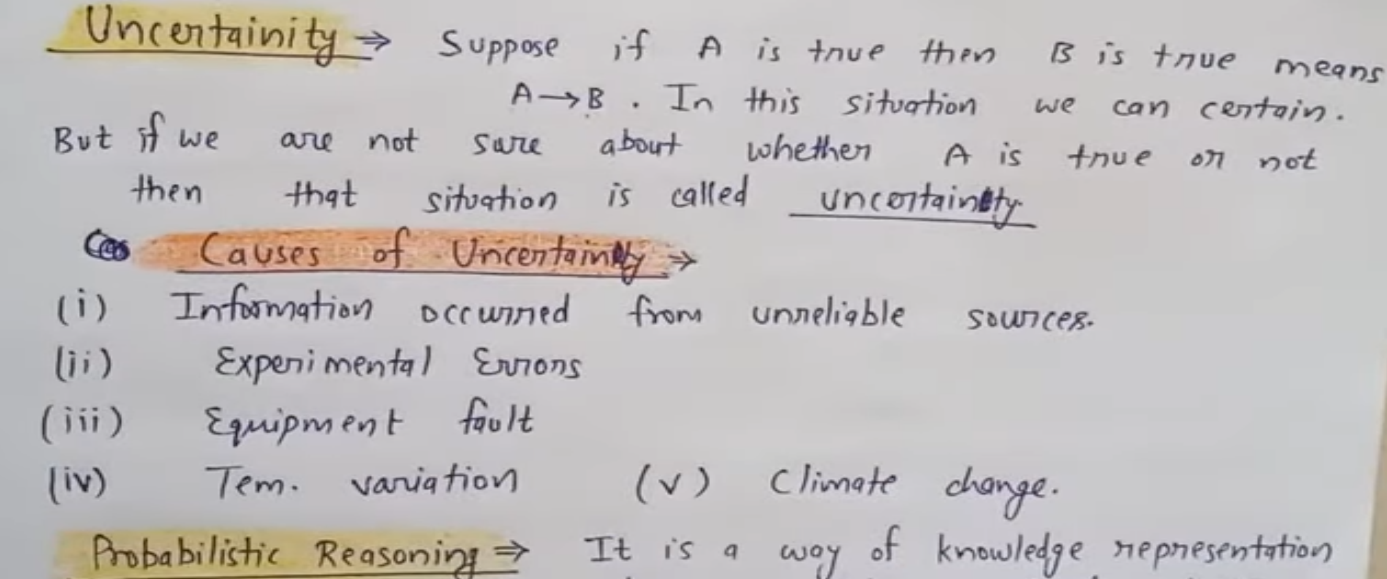 Uncertainity ⇒ Suppose if A is true then B is true means
A→B . In this situation we can certain.
But if we are not sure about whether A is true or not
then that situation is called uncertainty
Causes of Uncertainty →
(i) Information occurred from unreliable sources.
(ii) Experimental Errors
(iii) Equipment fault
(iv) Tem. variation (v) Climate change.
Probabilistic Reasoning ⇒ It is a way of knowledge representation